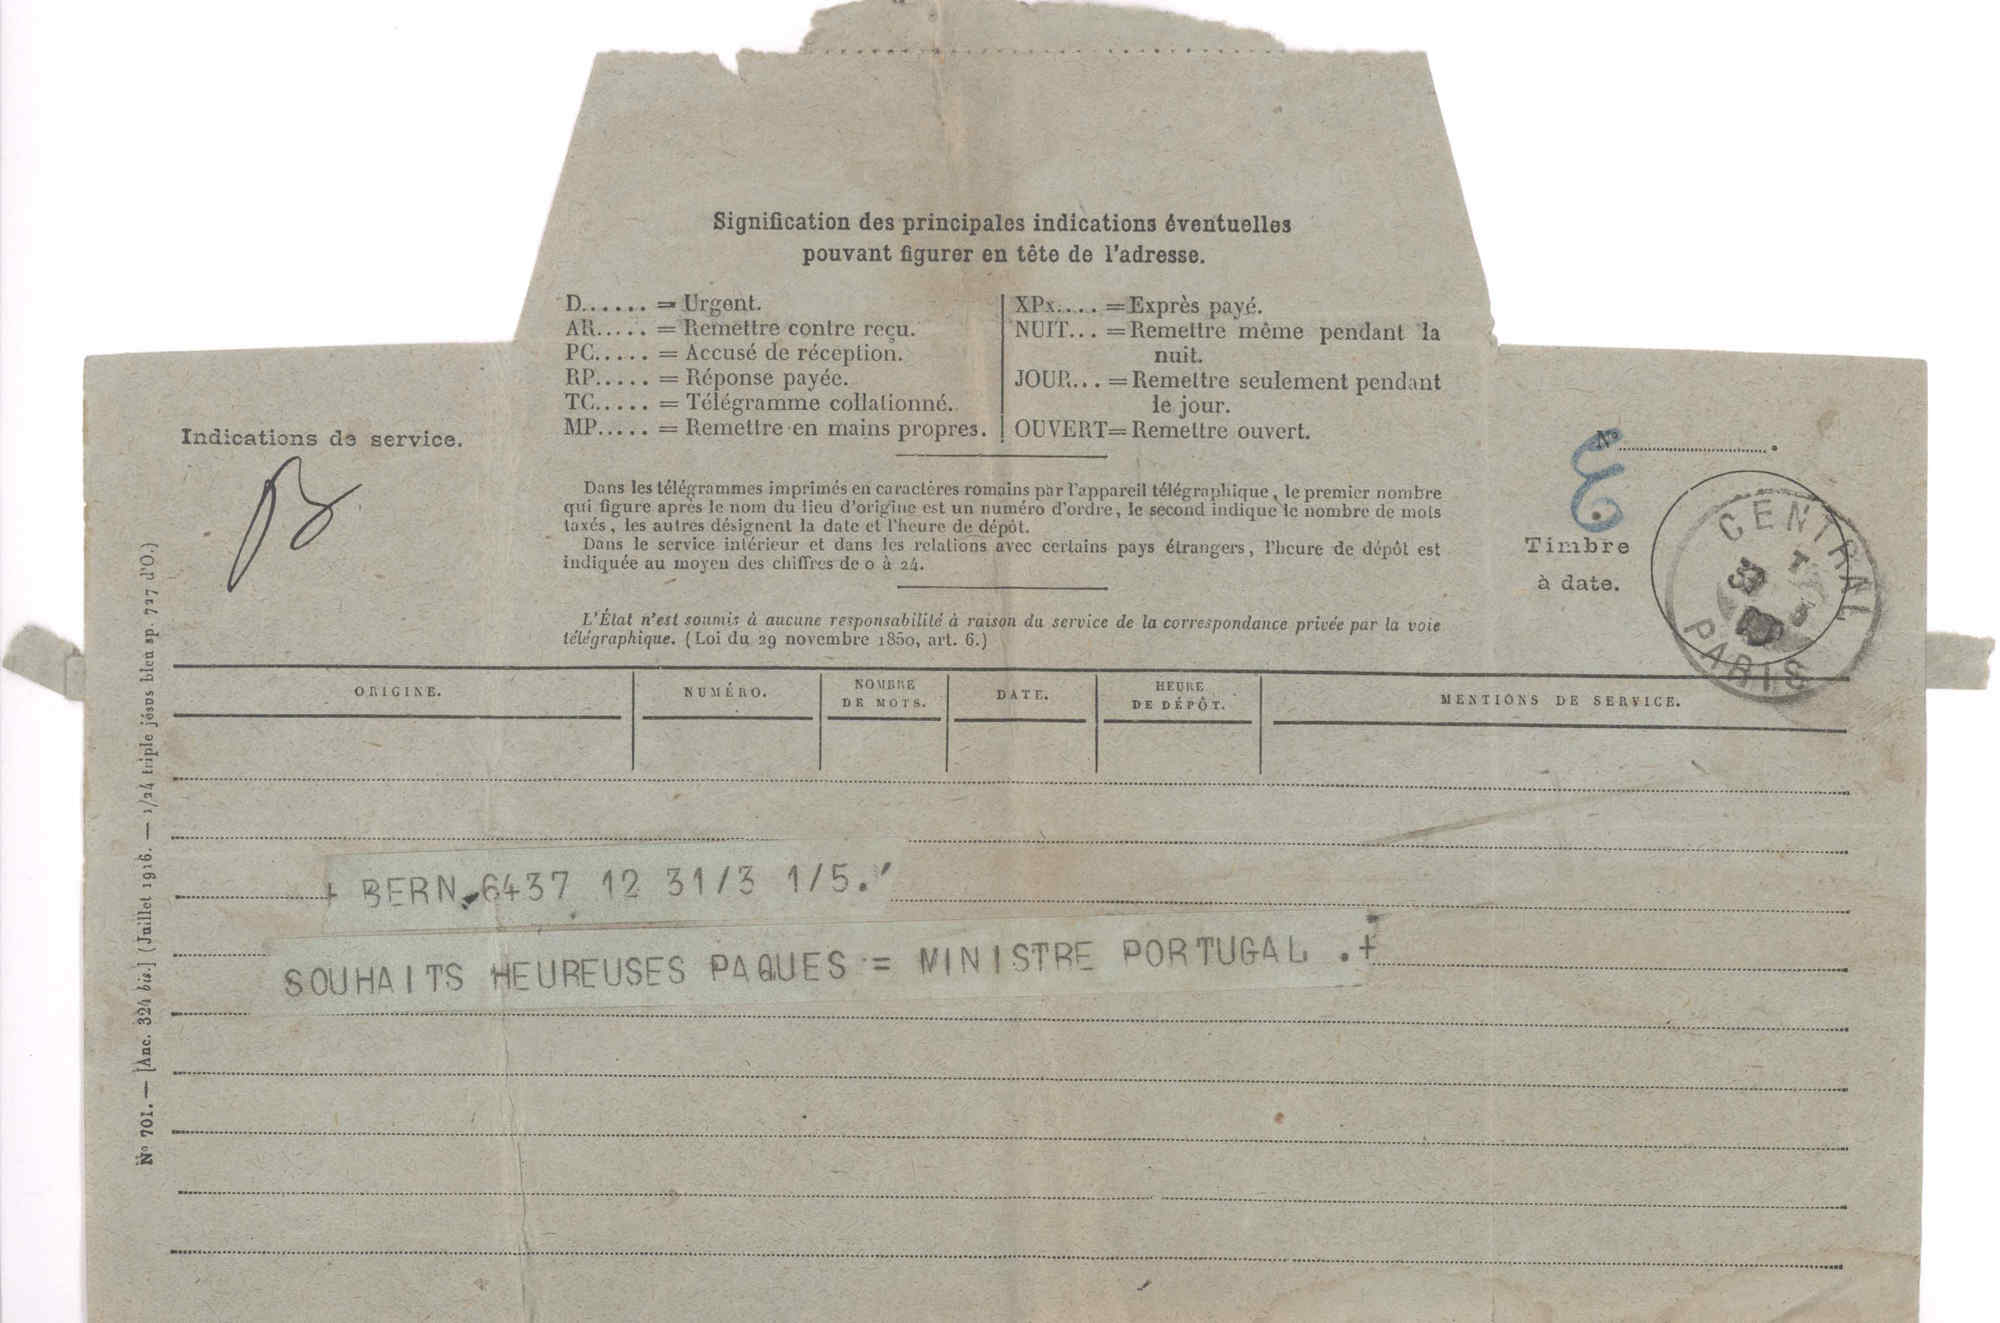 Signification des principales indications éventuelles
pouvant figurer en tête de l'adresse.
D...... = Urgent.
AR..... = Remettre contre reçu.
PC..... = Accusé de réception.
RP..... = Réponse payée.
TC..... = Télégramme collationné.
MP..... = Remettre en mains propres.
XPx.... = Exprès payé.
NUIT... = Remettre même pendant la
nuit.
JOUR... = Remettre seulement pendant
le jour.
OUVERT= Remettre ouvert.
Indications de service.
N°
Dans les télégrammes imprimés en caractères romains par l'appareil télégraphique, le premier nombre
qui figure après le nom du lieu d'origine est un numéro d'ordre, le second indique le nombre de mots
taxés, les autres désignent la date et l'heure de dépôt.
Dans le service intérieur et dans les relations avec certains pays étrangers, l'heure de dépôt est
indiquée au moyen des chiffres de 0 à 24.
Timbre
à date.
CENTRAL
PARIS
L'État n'est soumis à aucune responsabilité à raison du service de la correspondance privée par la voie
télégraphique. (Loi du 29 novembre 1850, art. 6.)
ORIGINE.
NUMÉRO.
NOMBRE
DE MOTS.
DATE.
HEURE
DE DÉPÔT.
MENTIONS DE SERVICE.
+ BERN 6437 12 31/3 1/5.'
SOUHAITS HEUREUSES PAQUES = MINISTRE PORTUGAL .+
N° 701. — [Anc. 324 bis.] (Juillet 1916. — 1/24 triple jésus bleu sp. 727 d'O.)